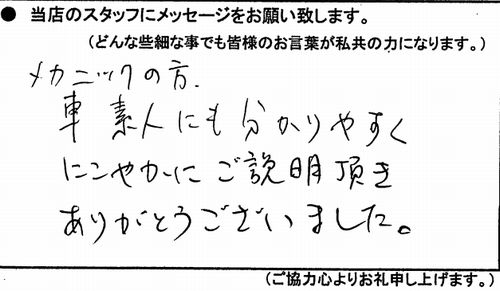 ● 当店のスタッフにメッセージをお願い致します。
(どんな些細な事でも皆様のお言葉が私共の力になります。)
メカニックの方.
車素人にも分かりやすく
にこやかにご説明頂き
ありがとうございました。
(ご協力心よりお礼申し上げます。)